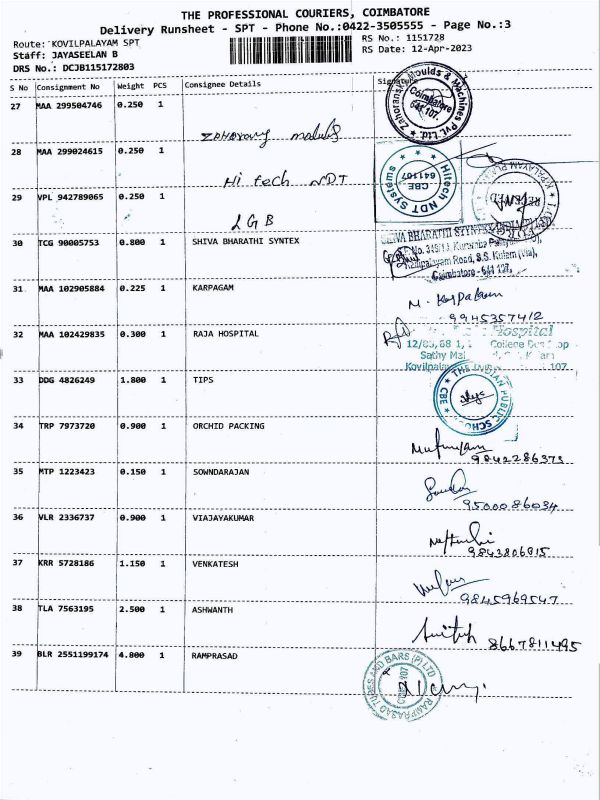 THE PROFESSIONAL COURIERS, COIMBATORE
Delivery Runsheet - SPT - Phone No.:0422-3505555 - Page No.:3
Route: KOVILPALAYAM SPT
RS No.: 1151728
Staff: JAYASEELAN B
RS Date: 12-Apr-2023
DRS No.: DCJB115172803
S No Consignment No Weight PCS Consignee Details Signature
27 MAA 299504746 0.250 1
Zahoransky Moulds & Machines Pvt. Ltd.
Coimbatore
641 107.
28 MAA 299024615 0.250 1
Hi tech NDT
Hitech NDT Systems
CBE
641107
29 VPL 942789065 0.250 1
LGB
30 TCG 90005753 0.800 1 SHIVA BHARATHI SYNTEX
SHIVA BHARATHI SYNTEX
Kovilpalayam Road, S.S. Kulam (Via),
Coimbatore - 641 107.
31 MAA 102905884 0.225 1 KARPAGAM
M. Karpakam
9945357412
32 MAA 102429835 0.300 1 RAJA HOSPITAL
Hospital
College Bus Stop
Sathy Mai
Kovilpalay 107
33 DDG 4826249 1.800 1 TIPS
THE INDIAN PUBLIC SCHOOL
CBE
34 TRP 7973720 0.900 1 ORCHID PACKING
9842286373
35 MTP 1223423 0.150 1 SOWNDARAJAN
9500086034
36 VLR 2336737 0.900 1 VIAJAYAKUMAR
9843806915
37 KRR 5728186 1.150 1 VENKATESH
9845969547
38 TLA 7563195 2.500 1 ASHWANTH
8667811495
39 BLR 2551199174 4.800 1 RAMPRASAD
RAMPRASAD TUBES AND BARS (P) LTD